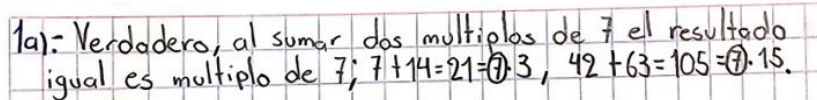 1a).- Verdadero, al sumar dos multiplos de 7 el resultado
igual es multiplo de 7; 7+14=21=⑦·3, 42+63=105=⑦·15.